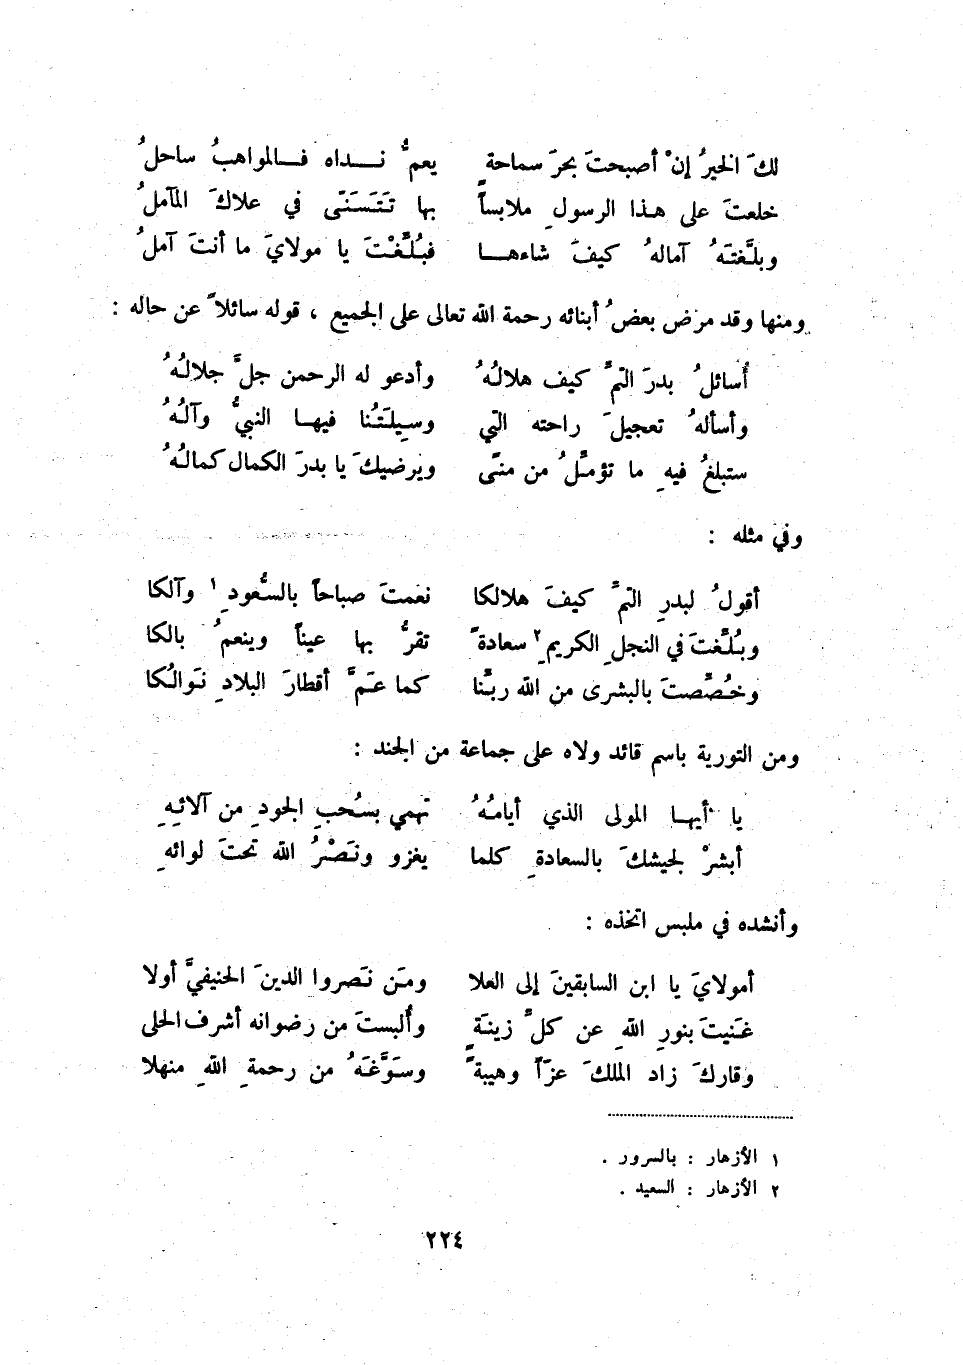 لكَ الخيرُ إنْ أصبحتَ بحرَ سماحةٍ يعمُّ نداه فالمواهبُ ساحلُ
خلعتَ على هذا الرسولِ ملابساً بها تَتَسَنّى في علاكَ المآملُ
وبلَّغتَهُ آمالهُ كيفَ شاءها فبُلِّغْتَ يا مولايَ ما أنتَ آملُ
ومنها وقد مرض بعضُ أبنائه رحمة الله تعالى على الجميع ، قوله سائلاً عن حاله :
أُسائلُ بدرَ التمِّ كيف هلالُهُ وأدعو له الرحمن جلَّ جلالُهُ
وأسألهُ تعجيلَ راحته التي وسيلَتُنا فيها النبيُّ وآلُهُ
ستبلغُ فيهِ ما تؤمِّلُ من منىً ويرضيكَ يا بدرَ الكمال كمالُهُ
وفي مثله :
أقولُ لبدرِ التمِّ كيفَ هلالكا نعمتَ صباحاً بالسُّعودِ ١ وآلكا
وبُلِّغتَ في النجلِ الكريمِ ٢ سعادةً تقرُّ بها عيناً وينعمُ بالكا
وخُصِّصتَ بالبشرى من الله ربِّنا كما عَمَّ أقطارَ البلادِ نَوالُكا
ومن التورية باسم قائد ولاه على جماعة من الجند :
يا أيها المولى الذي أيامُهُ تهمي بسُحبِ الجودِ من آلائِهِ
أبشرْ لجيشكَ بالسعادةِ كلما يغزو ونَصْرُ الله تحتَ لوائهِ
وأنشده في ملبس اتخذه :
أمولايَ يا ابن السابقينَ إلى العلا ومَن نَصروا الدينَ الحنيفيَّ أولا
غَنيتَ بنورِ اللهِ عن كلِّ زينَةٍ وأُلبستَ من رضوانه أشرف الحلى
وقارك زاد الملكَ عزّاً وهيبةً وسَوَّغَهُ من رحمةِ اللهِ منهلا
١ الأزهار : بالسرور .
٢ الأزهار : السعيد .
٢٢٤